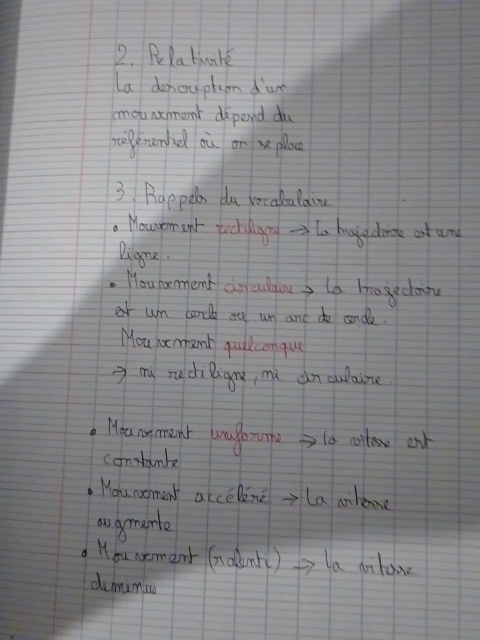 2. Relativité
La description d'un
mouvement dépend du
référentiel où on se place
3. Rappels du vocabulaire
• Mouvement rectiligne → la trajectoire est une
ligne.
• Mouvement circulaire → la trajectoire
est un cercle ou un arc de cercle.
Mouvement quelconque
→ ni rectiligne, ni circulaire.
• Mouvement uniforme → la vitesse est
constante
• Mouvement accéléré → la vitesse
augmente
• Mouvement (ralenti) → la vitesse
diminue